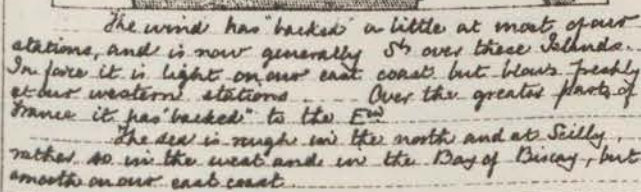 The wind has "backed" a little at most of our
stations, and is now generally Sth over these Islands.
In force it is light on our east coast but blows freshly
at our western stations Over the greater parts of
France it has "backed" to the Ewd
The sea is rough in the north and at Scilly,
rather so in the west and in the Bay of Biscay, but
smooth on our east coast